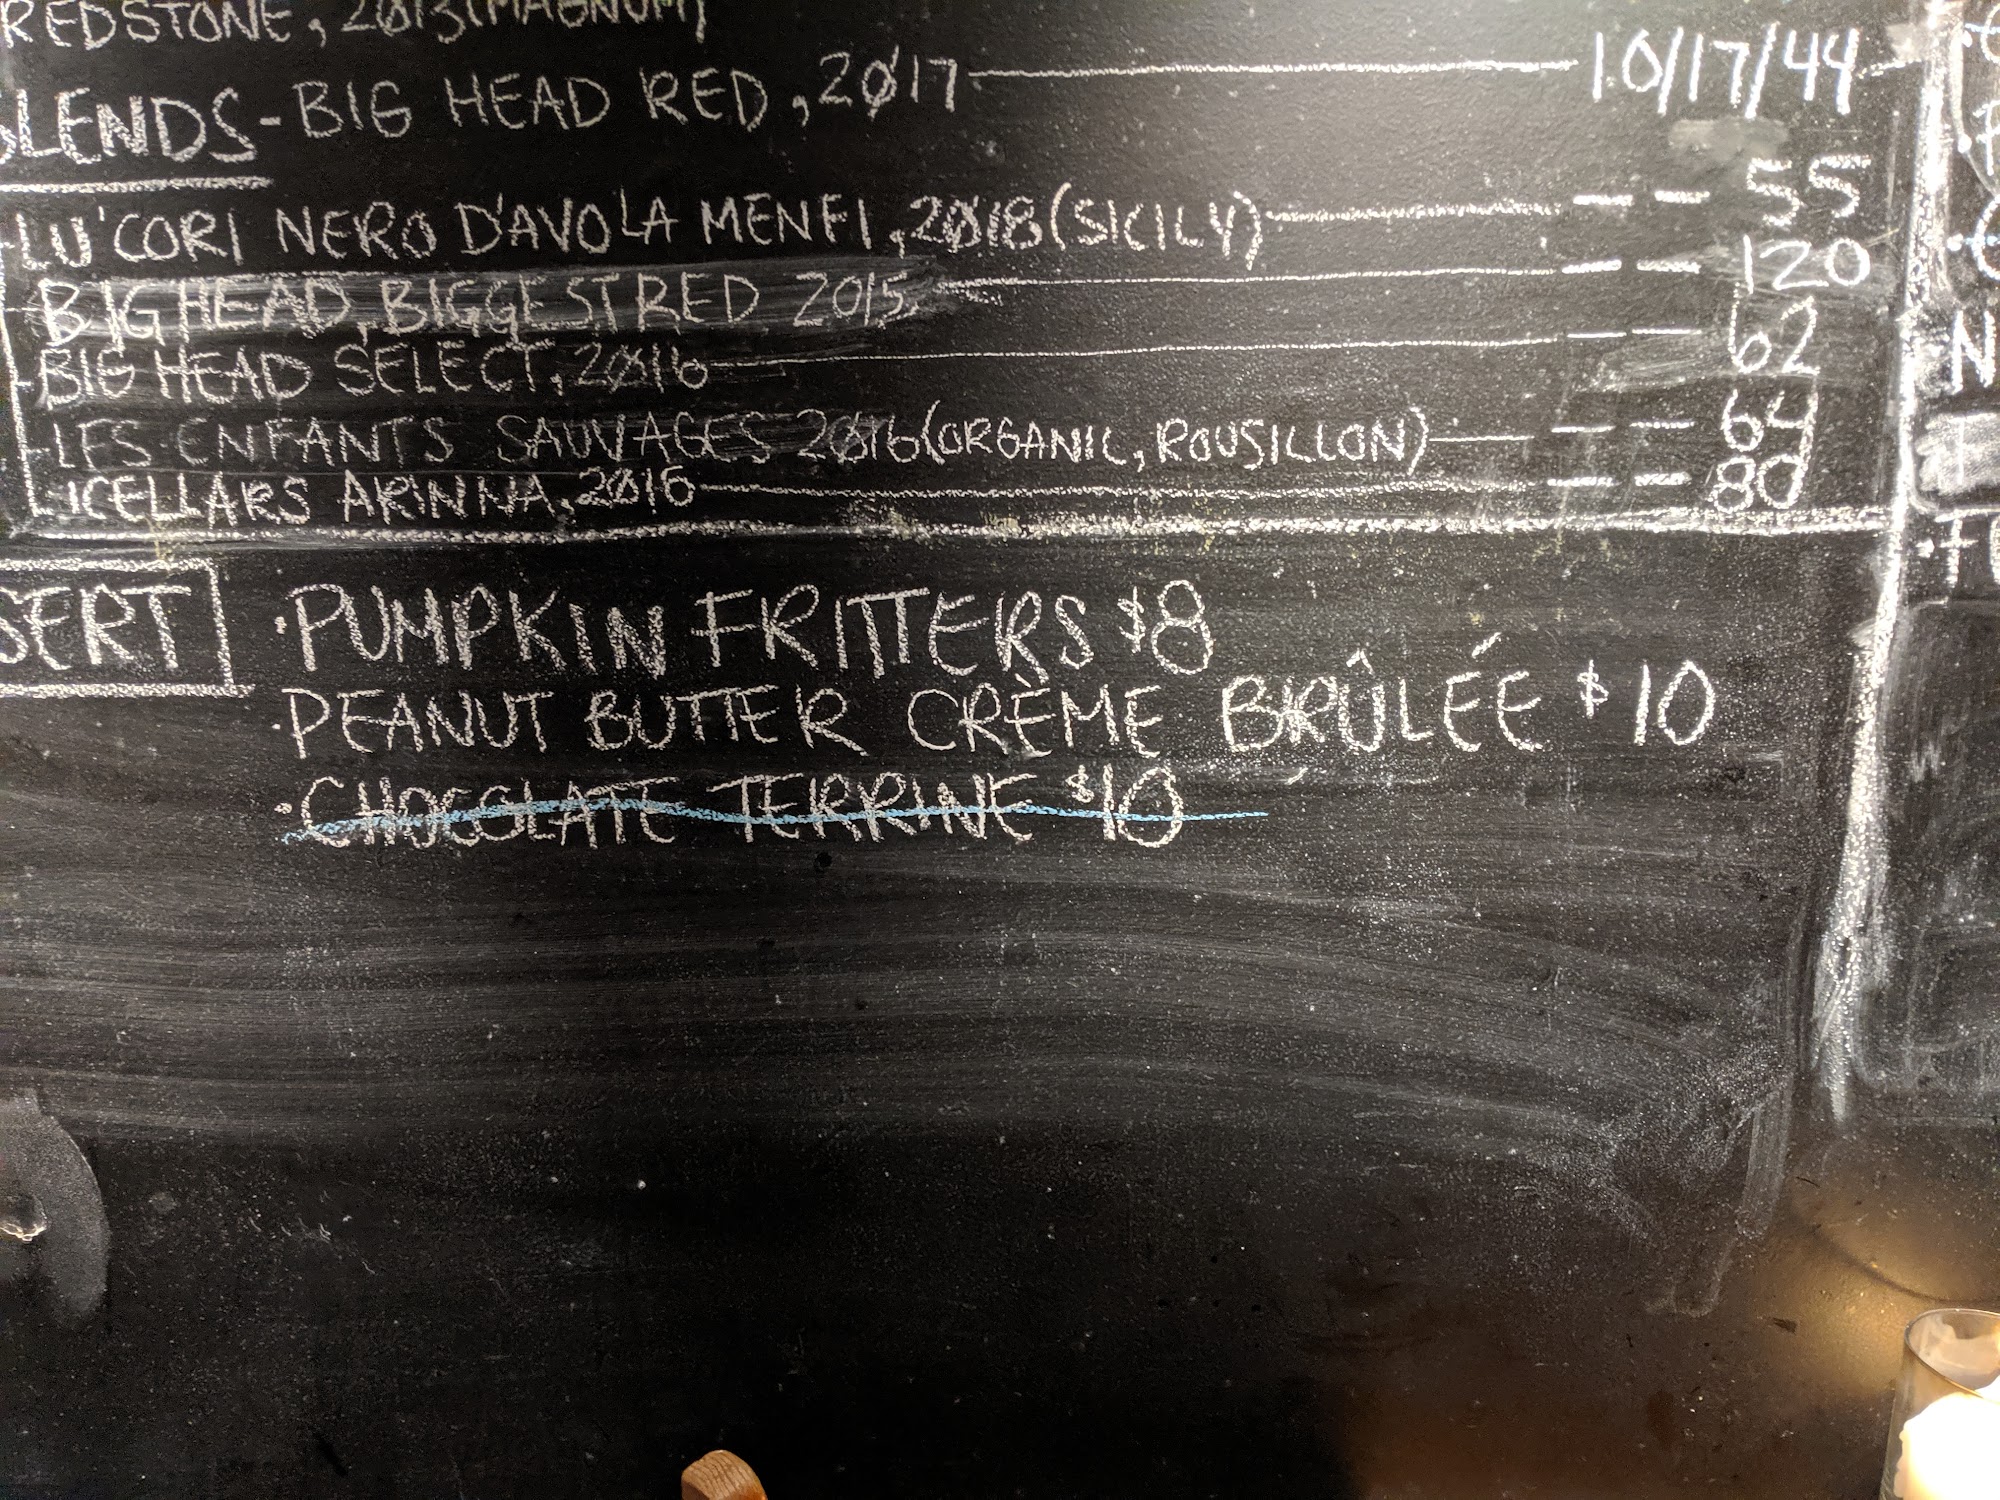 REDSTONE, 2013 (MAGNUM)
BLENDS - BIG HEAD RED, 2017 10/17/44
LU'CORI NERO D'AVOLA MENFI, 2018 (SICILY) 55
BIG HEAD, BIGGEST RED 2015 120
BIG HEAD SELECT, 2016 62
LES ENFANTS SAUVAGES 2016 (ORGANIC, ROUSILLON) 64
ICELLARS ARINNA, 2016 80
SERT
·PUMPKIN FRITTERS $8
·PEANUT BUTTER CRÈME BRÛLÉE $10
·CHOCOLATE TERRINE $10